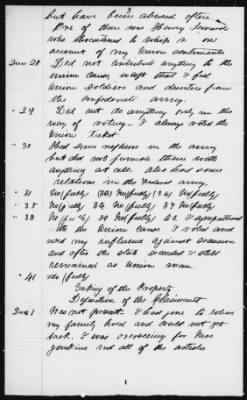 but have been abused often.
One of them was Henry Leonard
who threatened to whip me on
account of my Union sentiments
Ques 28 Did not contribute anything to the
Union cause, except that I fed
Union soldiers and deserters from
the Confederate army.
" 29 Did not do anything only in the
way of voting - I always voted the
Union ticket
" 30 Had some nephews in the army
but did not furnish them with
anything at all. Also had some
relations in the Federal army.
" 31 No (fully)
" 35 No (fully) 36 No (fully) 37 No (fully)
" 38 No (fully) 39 No (fully) 40. I sympathized
with the Union cause. I voted and
used my influence against secession
and after the state seceded I still
remained a Union man
" 41 No (fully)
Taking of the Property
Deposition of the Claimant
Ques 1 Was not present. I had gone to where
my family lived and could not get
back. I was overseeing for
and all of the articles
1